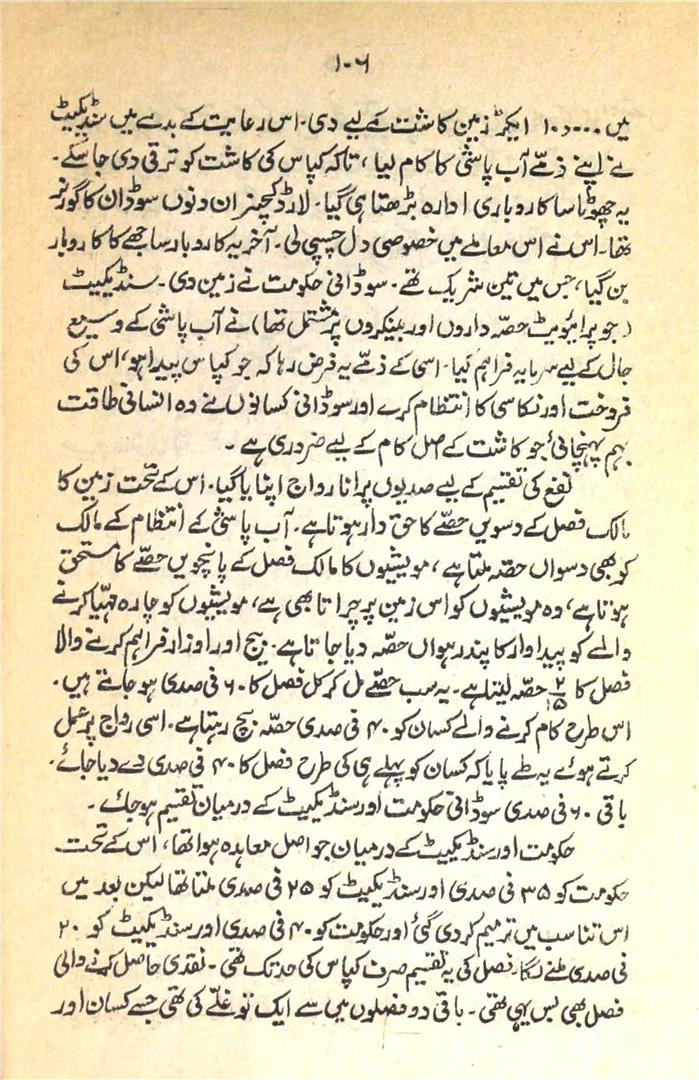 ۱۰۶
میں ۱۰,۰۰۰ ایکڑ زمین کاشت کے لیے دی۔ اس رعایت کے بدلے میں سنڈیکیٹ
نے اپنے ذمّے آب پاشی کا کام لیا، تاکہ کپاس کی کاشت کو ترقی دی جا سکے۔
یہ چھوٹا سا کاروباری ادارہ بڑھتا ہی گیا۔ لارڈ کچنر ان دنوں سوڈان کا گورنر
تھا۔ اس نے اس معاملے میں خصوصی دل چسپی لی۔ آخر یہ کاروبار ساجھے کا کاروبار
بن گیا، جس میں تین شریک تھے۔ سوڈانی حکومت نے زمین دی۔ سنڈیکیٹ
(جو پرائیویٹ حصّہ داروں اور بینکروں پر مشتمل تھا) نے آب پاشی کے وسیع
جال کے لیے سرمایہ فراہم کیا۔ اسی کے ذمّے یہ فرض رہا کہ جو کپاس پیدا ہو، اس کی
فروخت اور نکاسی کا انتظام کرے اور سوڈانی کسانوں نے وہ انسانی طاقت
بہم پہنچائی جو کاشت کے اصل کام کے لیے ضروری ہے۔
نفع کی تقسیم کے لیے صدیوں پرانا رواج اپنایا گیا۔ اس کے تحت زمین کا
مالک فصل کے دسویں حصّے کا حق دار ہوتا ہے۔ آب پاشی کے انتظام کے مالک
کو بھی دسواں حصّہ ملتا ہے، مویشیوں کا مالک فصل کے پانچویں حصّے کا مستحق
ہوتا ہے، وہ مویشیوں کو اس زمین پر چراتا بھی ہے، مویشیوں کو چارہ مہیّا کرنے
والے کو پیداوار کا پندرہواں حصّہ دیا جاتا ہے۔ بیج اور اوزار فراہم کرنے والا
فصل کا ۲/۱۵ حصّہ لیتا ہے۔ یہ سب حصّے مل کر کل فصل کا ۶۰ فی صدی ہو جاتے ہیں۔
اس طرح کام کرنے والے کسان کو ۴۰ فی صدی حصّہ بچ رہتا ہے۔ اسی رواج پر عمل
کرتے ہوئے یہ طے پایا کہ کسان کو پہلے ہی کی طرح فصل کا ۴۰ فی صدی دے دیا جائے۔
باقی ۶۰ فی صدی سوڈانی حکومت اور سنڈیکیٹ کے درمیان تقسیم ہو جائے۔
حکومت اور سنڈیکیٹ کے درمیان جو اصل معاہدہ ہوا تھا، اس کے تحت
حکومت کو ۳۵ فی صدی اور سنڈیکیٹ کو ۲۵ فی صدی ملتا تھا لیکن بعد میں
اس تناسب میں ترمیم کر دی گئی اور حکومت کو ۴۰ فی صدی اور سنڈیکیٹ کو ۲۰
فی صدی ملنے لگا۔ فصل کی یہ تقسیم صرف کپاس کی حد تک تھی۔ نقدی حاصل کرنے والی
فصل بھی بس یہی تھی۔ باقی دو فصلوں میں سے ایک تو غلّے کی تھی جسے کسان اور